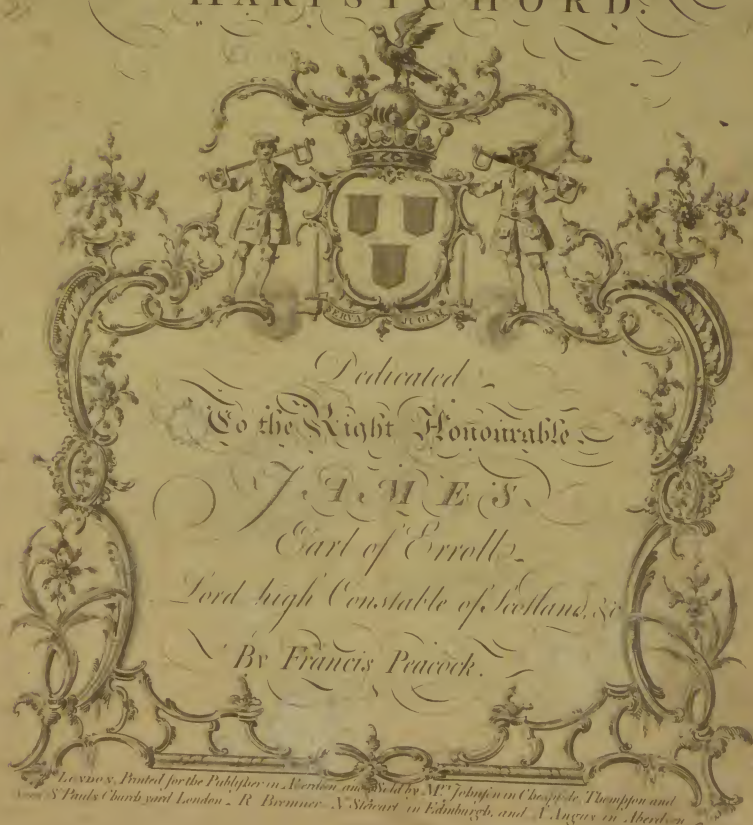 HARPSICHORD.
SERVA JUGUM
Dedicated
To the Right Honourable
JAMES
Earl of Erroll
Lord high Constable of Scotland, &c
By Francis Peacock.
LONDON, Printed for the Publisher in Aberdeen and Sold by Mrs. Johnson in Cheapside, Thompson and
Sons St Pauls Church yard London - R Bremner - N. Stewart in Edinburgh, and A Angus in Aberdeen